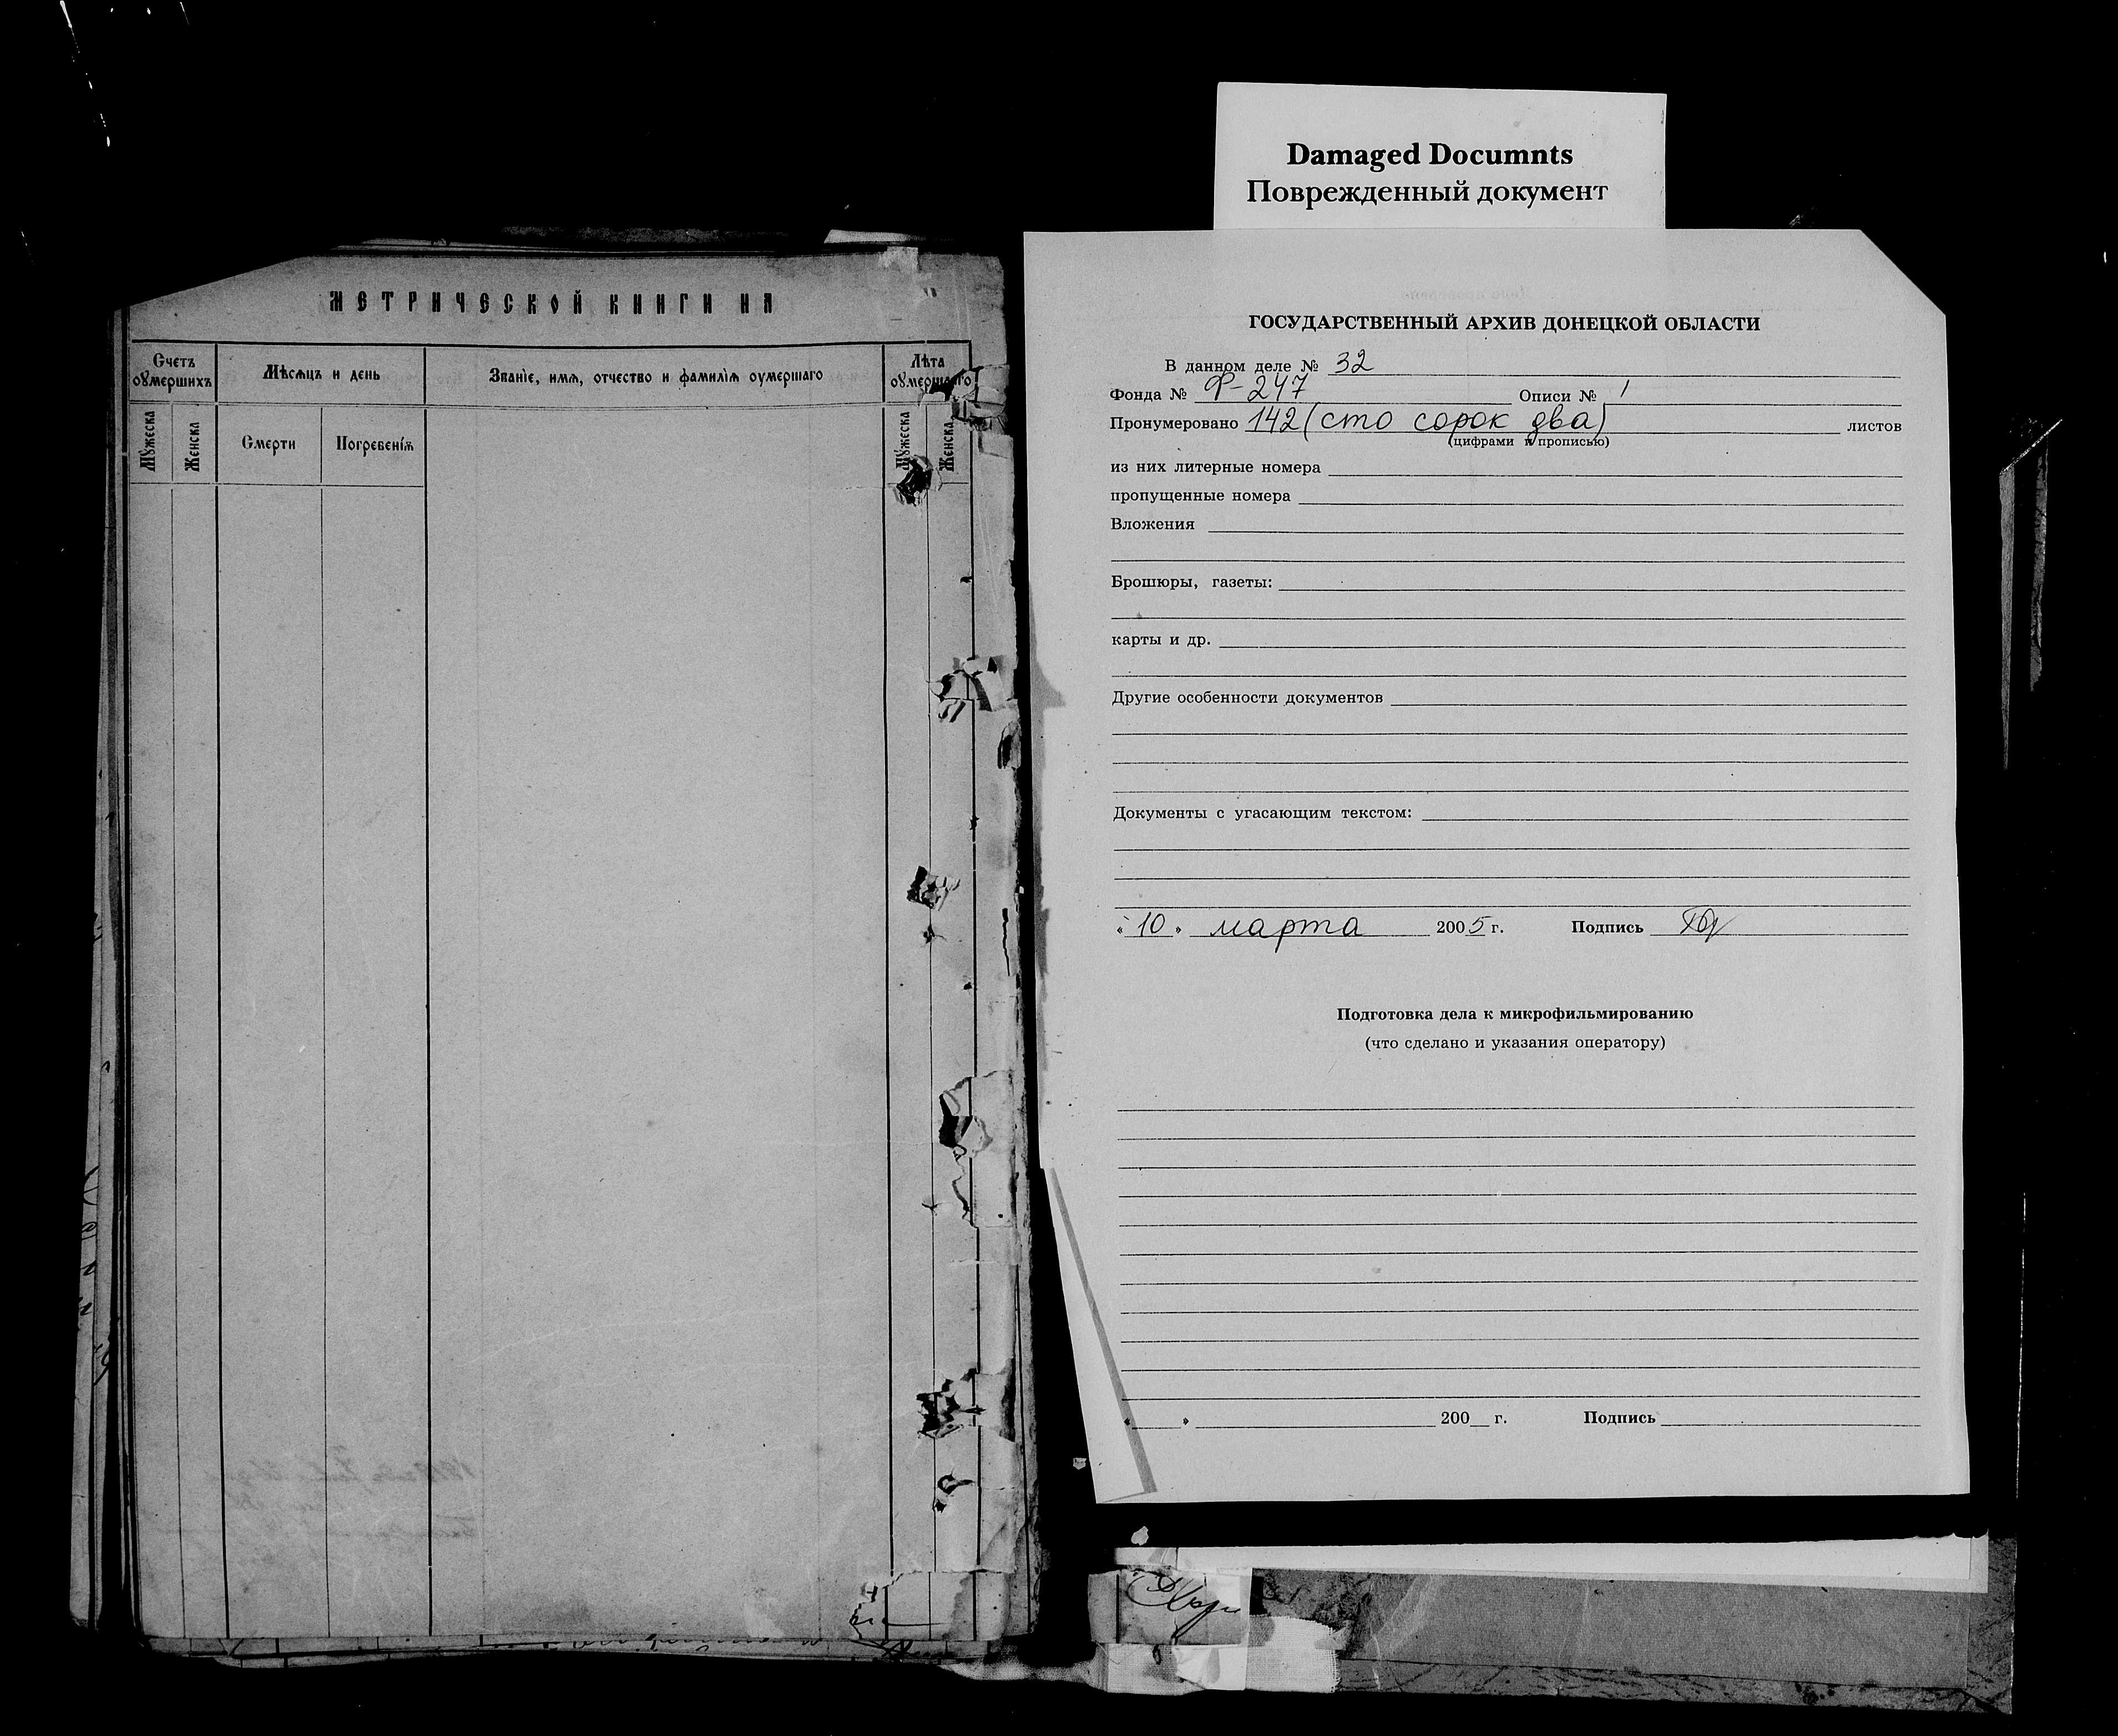 Damaged Documnts
Поврежденный документ
МЕТРИЧЕСКОЙ КНИГИ НА
Счетъ оумершихъ
Мѣсяцъ и день
Званіе, имя, отчество и фамилія оумершаго
Лѣта оумершаго
Мужеска
Женска
Смерти
Погребенія
Мужеска
Женска
ГОСУДАРСТВЕННЫЙ АРХИВ ДОНЕЦКОЙ ОБЛАСТИ
В данном деле № 32
Фонда № Ф-247 Описи № 1
Пронумеровано 142 (сто сорок два) листов
(цифрами и прописью)
из них литерные номера
пропущенные номера
Вложения
Брошюры, газеты:
карты и др.
Другие особенности документов
Документы с угасающим текстом:
«10» марта 2005 г. Подпись
Подготовка дела к микрофильмированию
(что сделано и указания оператору)
« » 200 г. Подпись